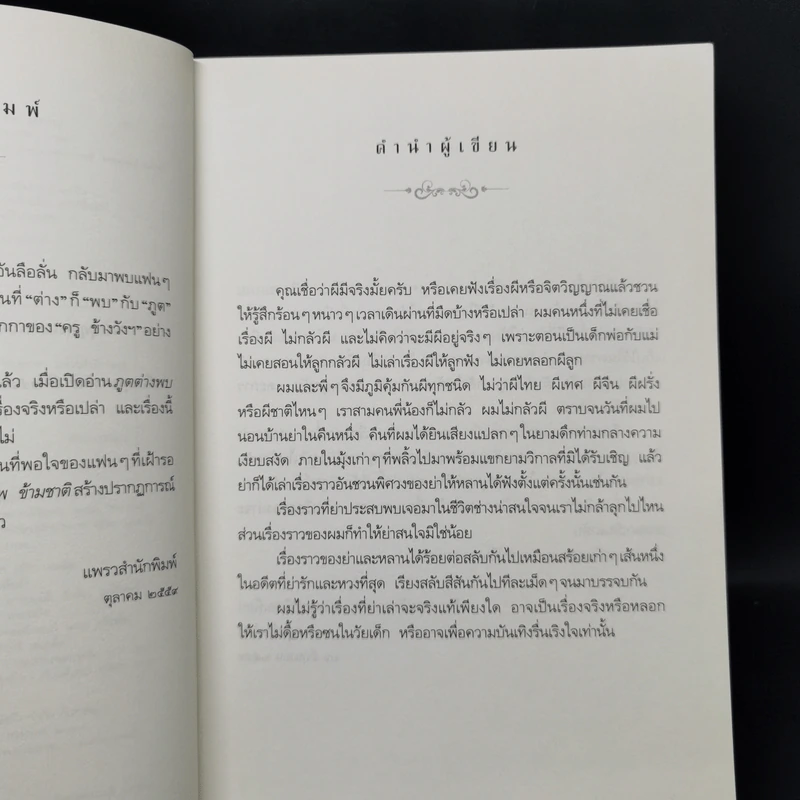 มพ์
อันลือลั่น กลับมาพบแฟนๆ
นที่ “ต่าง” ก็ “พบ” กับ “ภูต”
กกาของ “ครู ข้างวังฯ” อย่าง
แล้ว เมื่อเปิดอ่าน ภูตต่างพบ
รื่องจริงหรือเปล่า และเรื่องนี้
ไม่
นที่พอใจของแฟนๆ ที่เฝ้ารอ
พ ข้ามชาติ สร้างปรากฏการณ์
ว
แพรวสำนักพิมพ์
ตุลาคม ๒๕๕๙
คำนำผู้เขียน
คุณเชื่อว่าผีมีจริงมั้ยครับ หรือเคยฟังเรื่องผีหรือจิตวิญญาณแล้วชวน
ให้รู้สึกร้อนๆ หนาวๆ เวลาเดินผ่านที่มืดบ้างหรือเปล่า ผมคนหนึ่งที่ไม่เคยเชื่อ
เรื่องผี ไม่กลัวผี และไม่คิดว่าจะมีผีอยู่จริงๆ เพราะตอนเป็นเด็กพ่อกับแม่
ไม่เคยสอนให้ลูกกลัวผี ไม่เล่าเรื่องผีให้ลูกฟัง ไม่เคยหลอกผีลูก
ผมและพี่ๆ จึงมีภูมิคุ้มกันผีทุกชนิด ไม่ว่าผีไทย ผีเทศ ผีจีน ผีฝรั่ง
หรือผีชาติไหนๆ เราสามคนพี่น้องก็ไม่กลัว ผมไม่กลัวผี ตราบจนวันที่ผมไป
นอนบ้านย่าในคืนหนึ่ง คืนที่ผมได้ยินเสียงแปลกๆ ในยามดึกท่ามกลางความ
เงียบสงัด ภายในมุ้งเก่าๆ ที่พลิ้วไปมาพร้อมแขกยามวิกาลที่มิได้รับเชิญ แล้ว
ย่าก็ได้เล่าเรื่องราวอันชวนพิศวงของย่าให้หลานได้ฟังตั้งแต่ครั้งนั้นเช่นกัน
เรื่องราวที่ย่าประสบพบเจอมาในชีวิตช่างน่าสนใจจนเราไม่กล้าลุกไปไหน
ส่วนเรื่องราวของผมก็ทำให้ย่าสนใจมิใช่น้อย
เรื่องราวของย่าและหลานได้ร้อยต่อสลับกันไปเหมือนสร้อยเก่าๆ เส้นหนึ่ง
ในอดีตที่ย่ารักและหวงที่สุด เรียงสลับสีสันกันไปทีละเม็ดๆ จนมาบรรจบกัน
ผมไม่รู้ว่าเรื่องที่ย่าเล่าจะจริงแท้เพียงใด อาจเป็นเรื่องจริงหรือหลอก
ให้เราไม่ดื้อหรือซนในวัยเด็ก หรืออาจเพื่อความบันเทิงรื่นเริงใจเท่านั้น